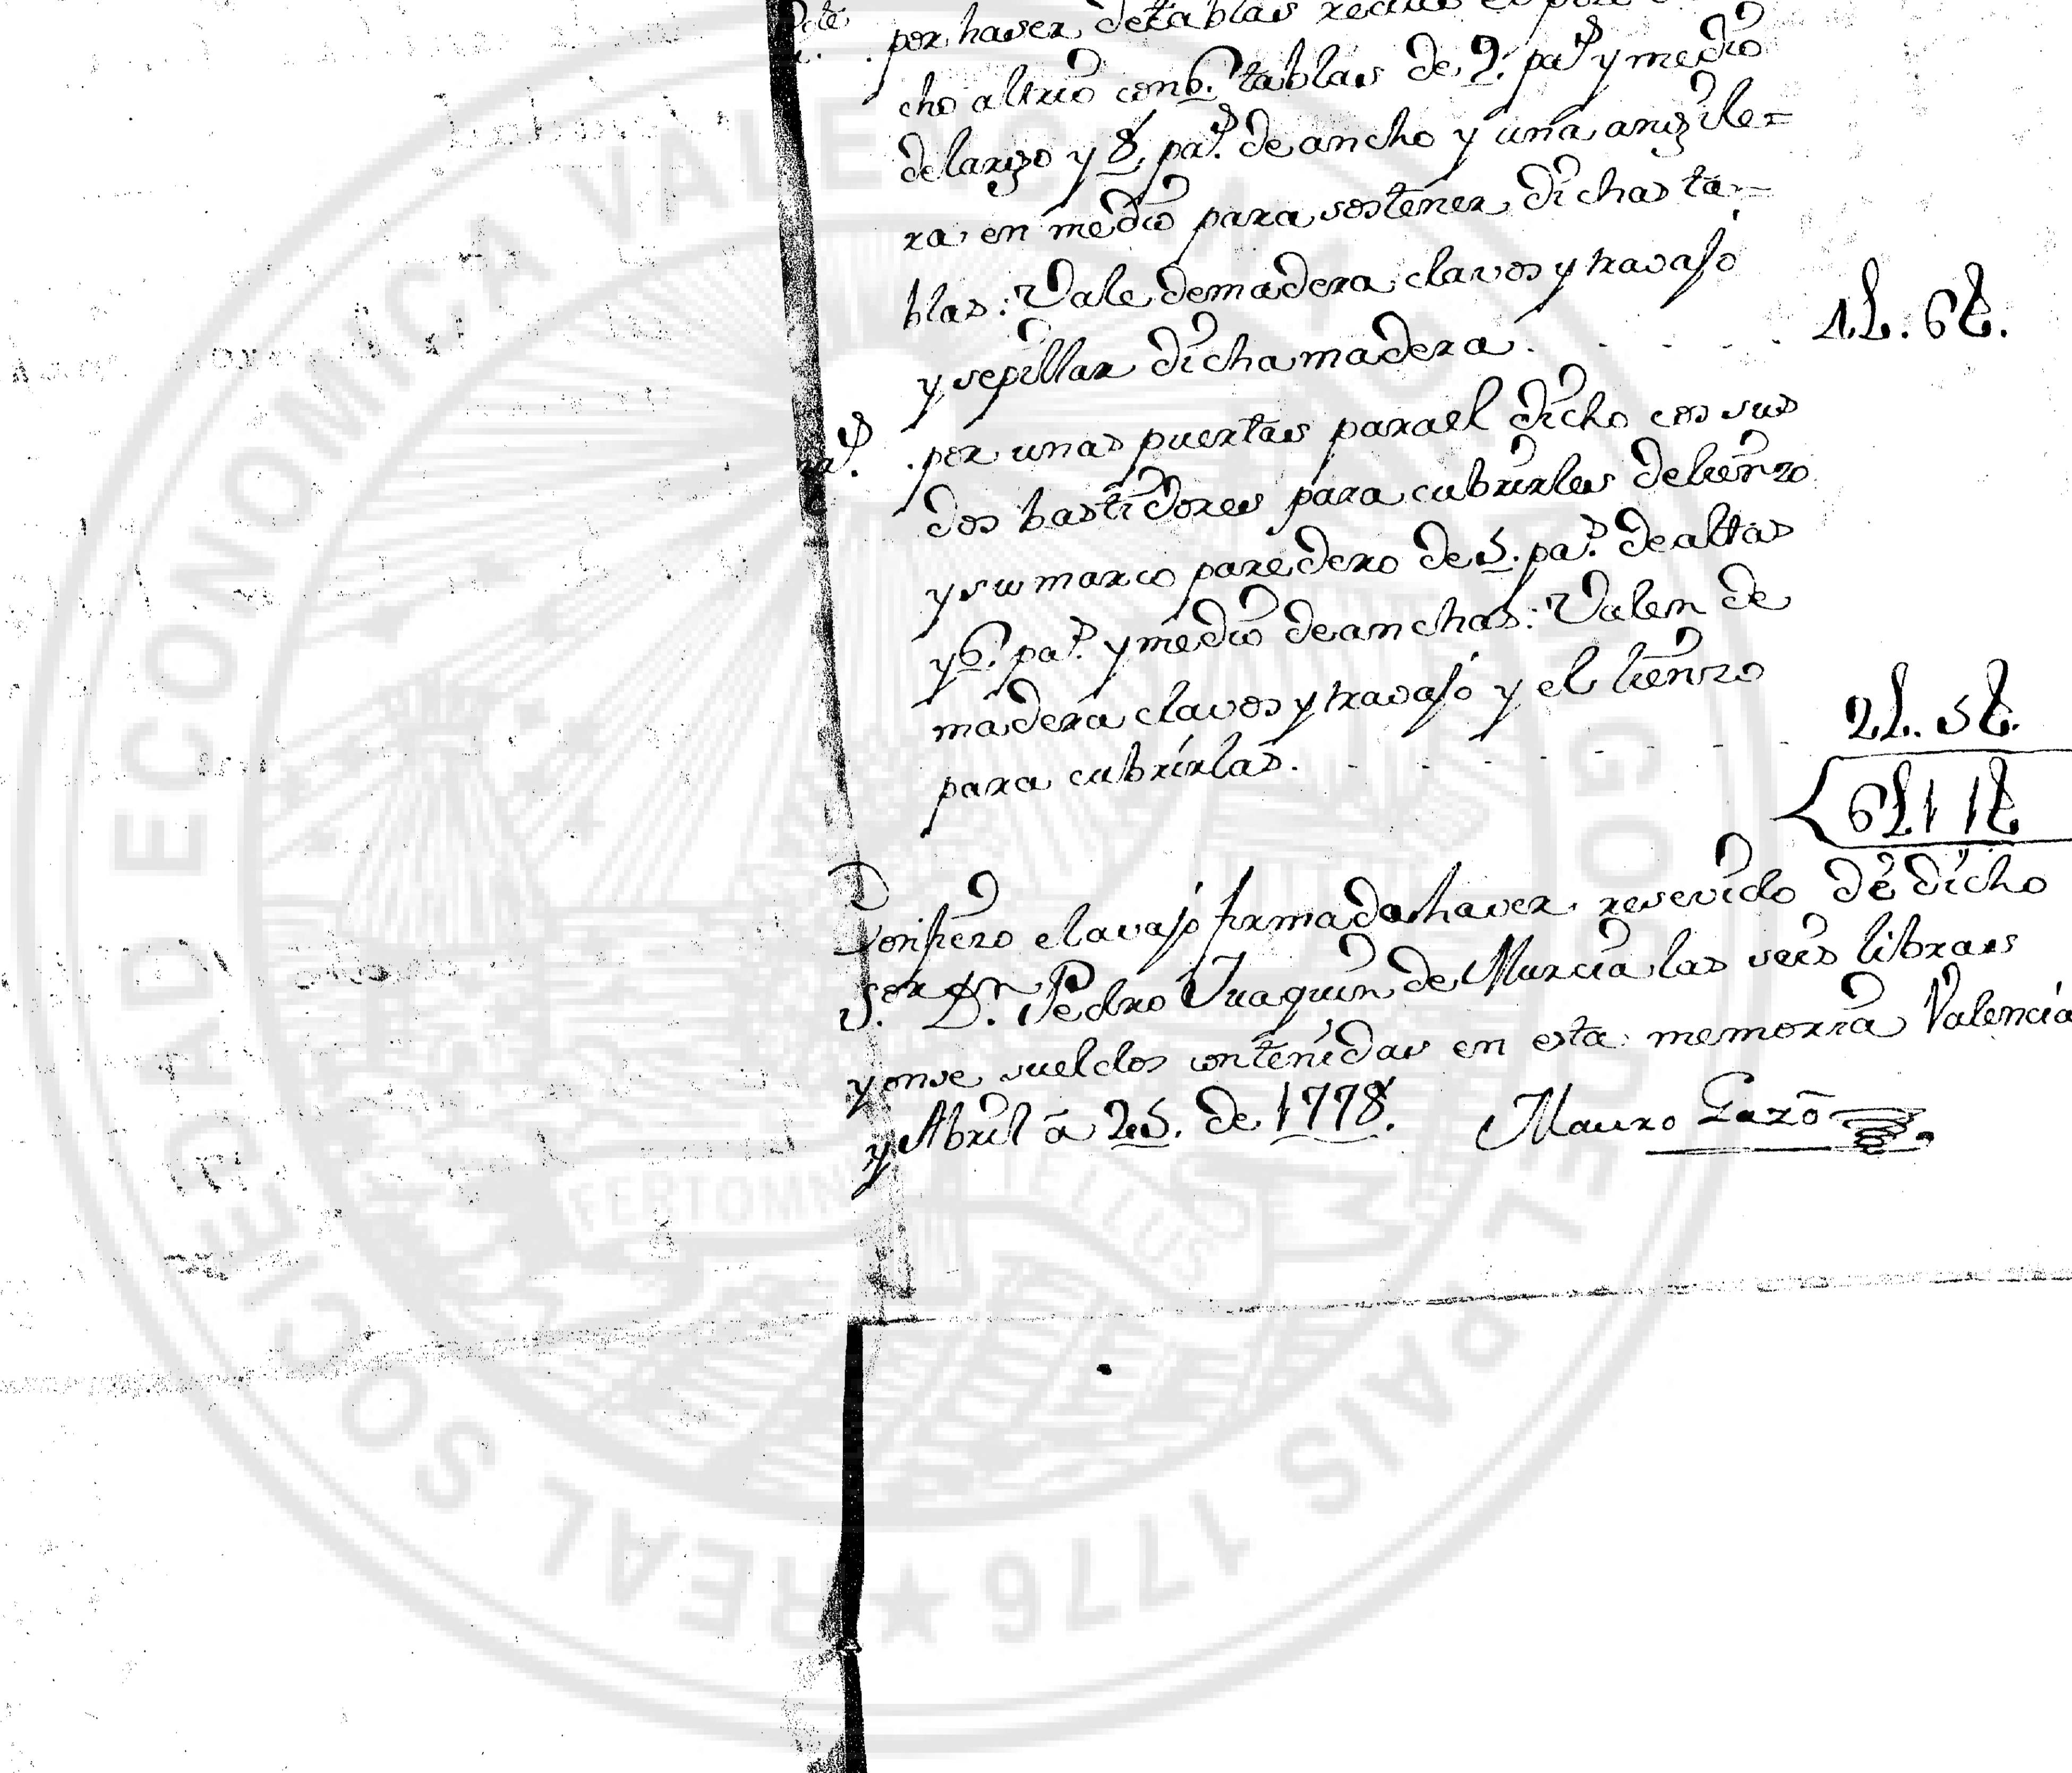 por haver detablas
cho altrio con 6. tablas de 9. pa.s y medio
delargo y 8, pa.s de ancho y una anguile=
ra en medio para sostener dichas ta=
blas: Vale demadera clavos y travajo
y sepillar dicha madera. 1L. 6S.
por unas puertas parael dicho con sus
dos bastidores para cubrirlas delienzo
y su marco paredero de 5. pa.s dealtas
y 6. pa.s y medio deanchas: Valen de
madera clavos y travajo y el lienzo
para cubrirlas. 2L. 5S.
6L11S
Confiezo elavajo firmado haver resevido de dicho
S.or D.n Pedro Juaquin de Murcia las seis libras
y onse sueldos contenidas en esta memoria Valencia
y Abril a 25. de 1778. Mauro Garo
REAL SOCIEDAD ECONOMICA VALENCIANA AMIGOS DEL PAIS 1776